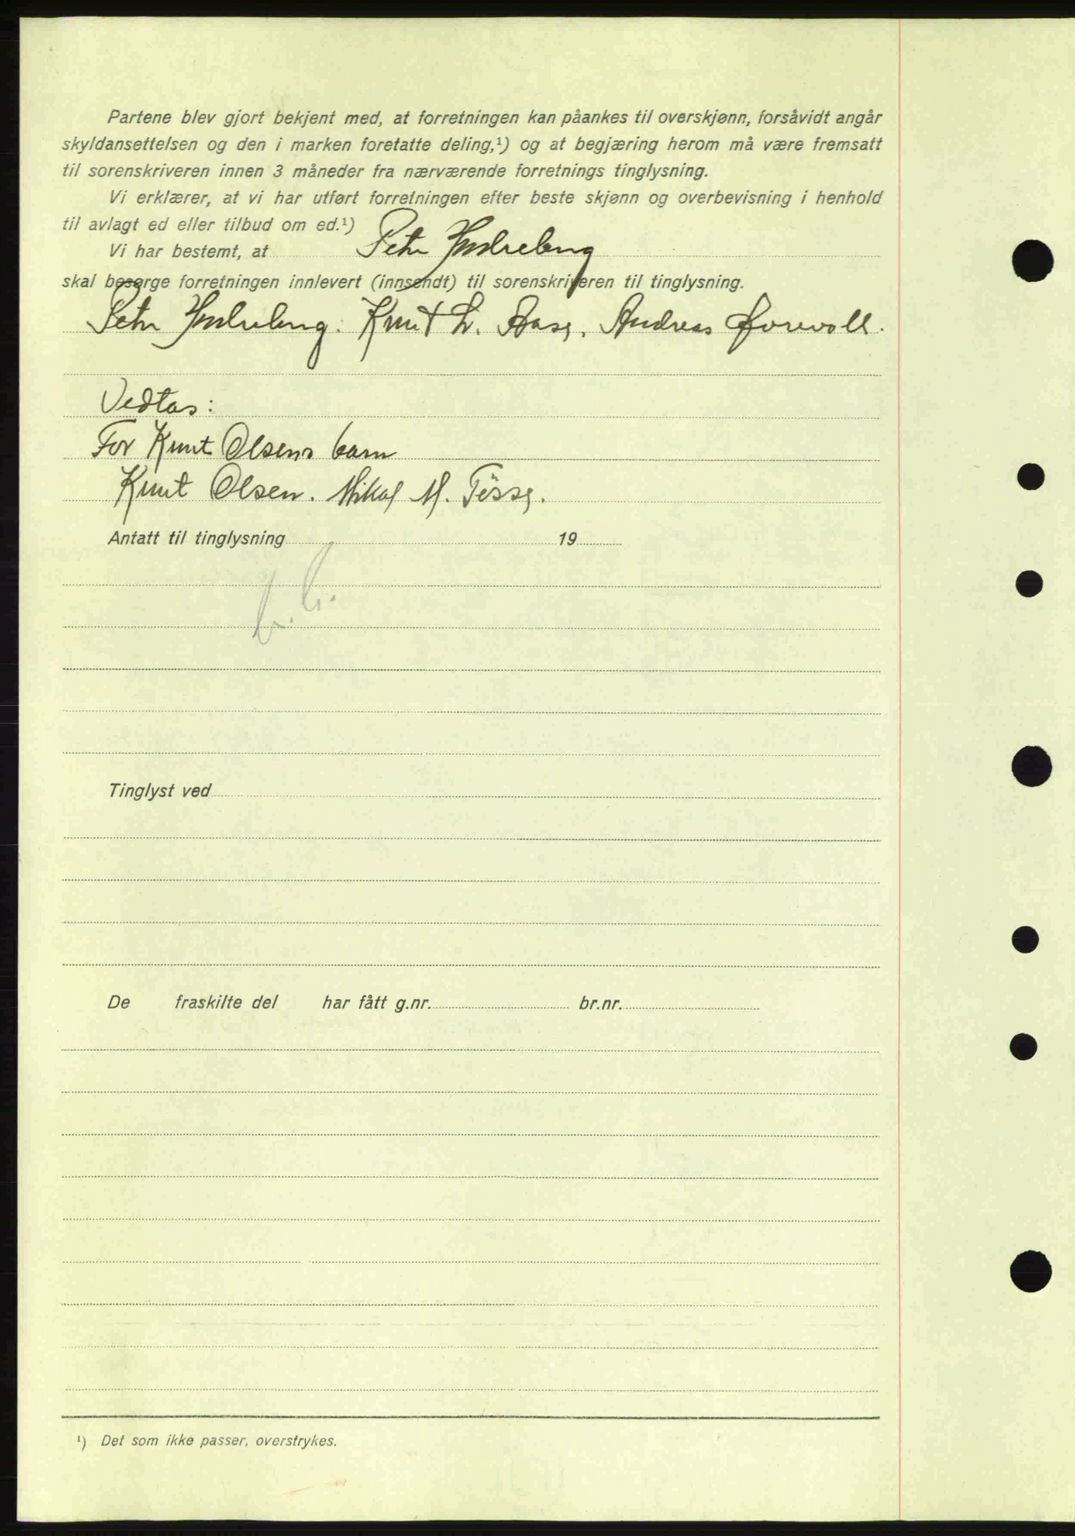 Partene blev gjort bekjent med, at forretningen kan påankes til overskjønn, forsåvidt angår
skyldansettelsen og den i marken foretatte deling,¹) og at begjæring herom må være fremsatt
til sorenskriveren innen 3 måneder fra nærværende forretnings tinglysning.
Vi erklærer, at vi har utført forretningen efter beste skjønn og overbevisning i henhold
til avlagt ed eller tilbud om ed.¹)
Vi har bestemt, at Petr Indreberg
skal besørge forretningen innlevert (innsendt) til sorenskriveren til tinglysning.
Petr Indreberg. Knut L. Aase. Andreas Ørevoll.
Vedtas:
For Knut Olsens barn
Knut Olsen. Mikal M. Tøsse.
Antatt til tinglysning 19
Tinglyst ved
De fraskilte del har fått g.nr. br.nr.
¹) Det som ikke passer, overstrykes.